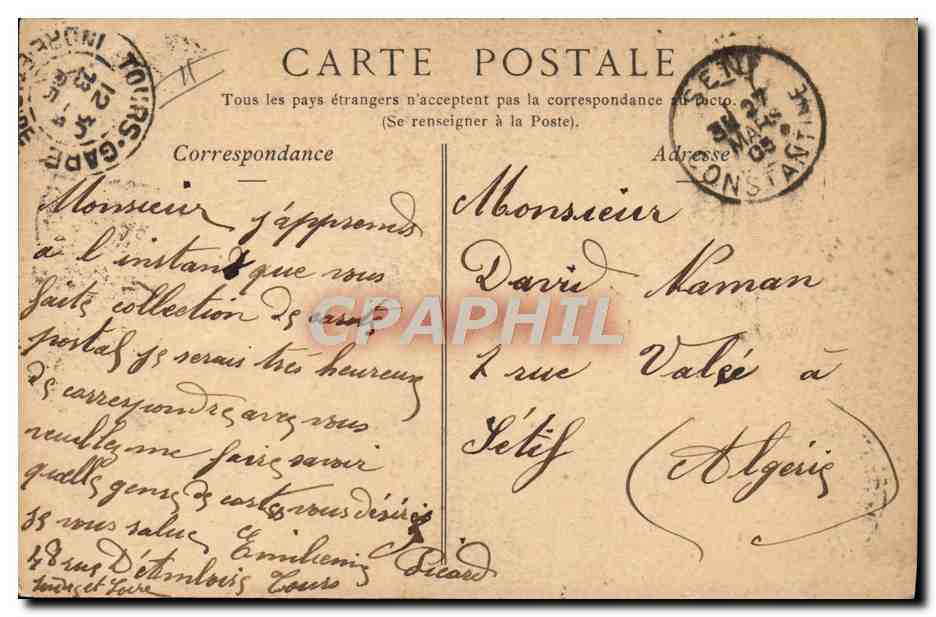 CARTE POSTALE
Tous les pays étrangers n'acceptent pas la correspondance au recto.
(Se renseigner à la Poste).
Correspondance
Monsieur j'apprends
à l'instant que vous
faite collection de carte
postal je serais très heureux
de correspondre avec vous
veuille me faire savoir
quelle genre de carte vous désirés
je vous salue Emilienne Picard
48 rue D'Amboise Tours
Indre et Loire
Adresse
Monsieur
David Naman
1 rue Valée à
Sétif (Algérie)
TOURS-GARE
INDRE-ET-LOIRE
12
CONSTANTINE
27
MARS
05
CPAPHIL